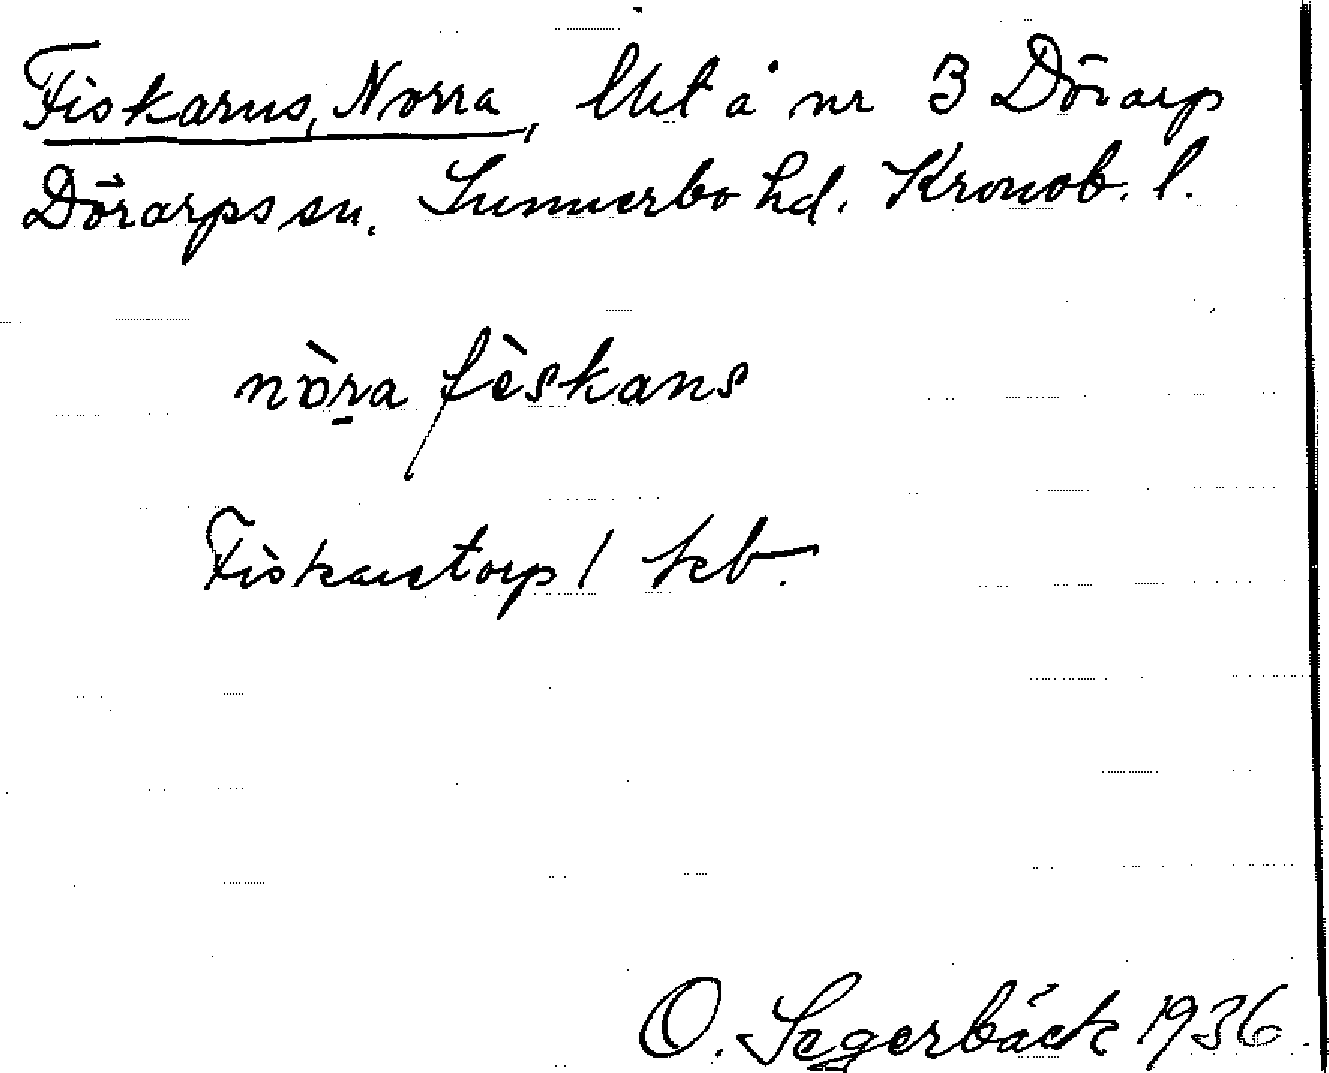 Fiskarns, Norra, lht å nr 3 Dörarp
Dörarps sn. Sunnerbo hd. Kronob. l.
nòra fèskans
Fiskaretorp / kb.
O. Segerbäck 1936